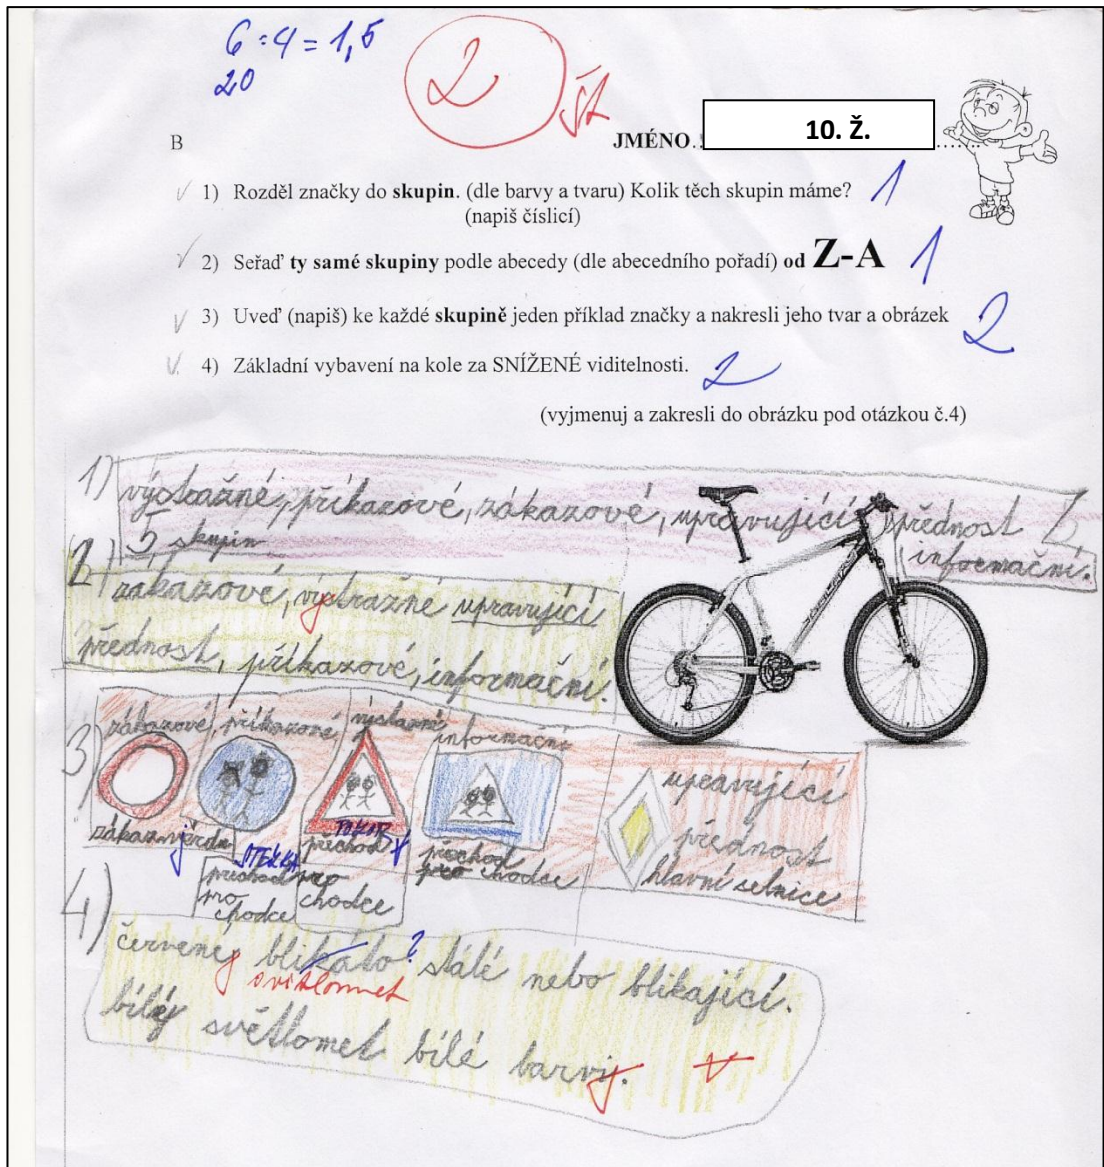 6 : 4 = 1,5
20
2
B
JMÉNO
10. Ž.
1) Rozděl značky do skupin. (dle barvy a tvaru) Kolik těch skupin máme? 1
(napiš číslicí)
2) Seřaď ty samé skupiny podle abecedy (dle abecedního pořadí) od Z-A 1
3) Uveď (napiš) ke každé skupině jeden příklad značky a nakresli jeho tvar a obrázek 2
4) Základní vybavení na kole za SNÍŽENÉ viditelnosti. 2
(vyjmenuj a zakresli do obrázku pod otázkou č.4)
1) výstražné, příkazové, zákazové, upravující přednost
5 skupin informační.
2) zákazové, výstražné upravující
přednost, příkazové, informační.
3) zákazové, příkazové, informační
upravující
přednost
hlavní selnice
zákaz vjezdu STEZKA přechod přechod
přechod pro pro chodce
pro chodce
chodce
4) červené blikáto? stálé nebo blikající.
světlomet
bílý světlomet bílé barvy.